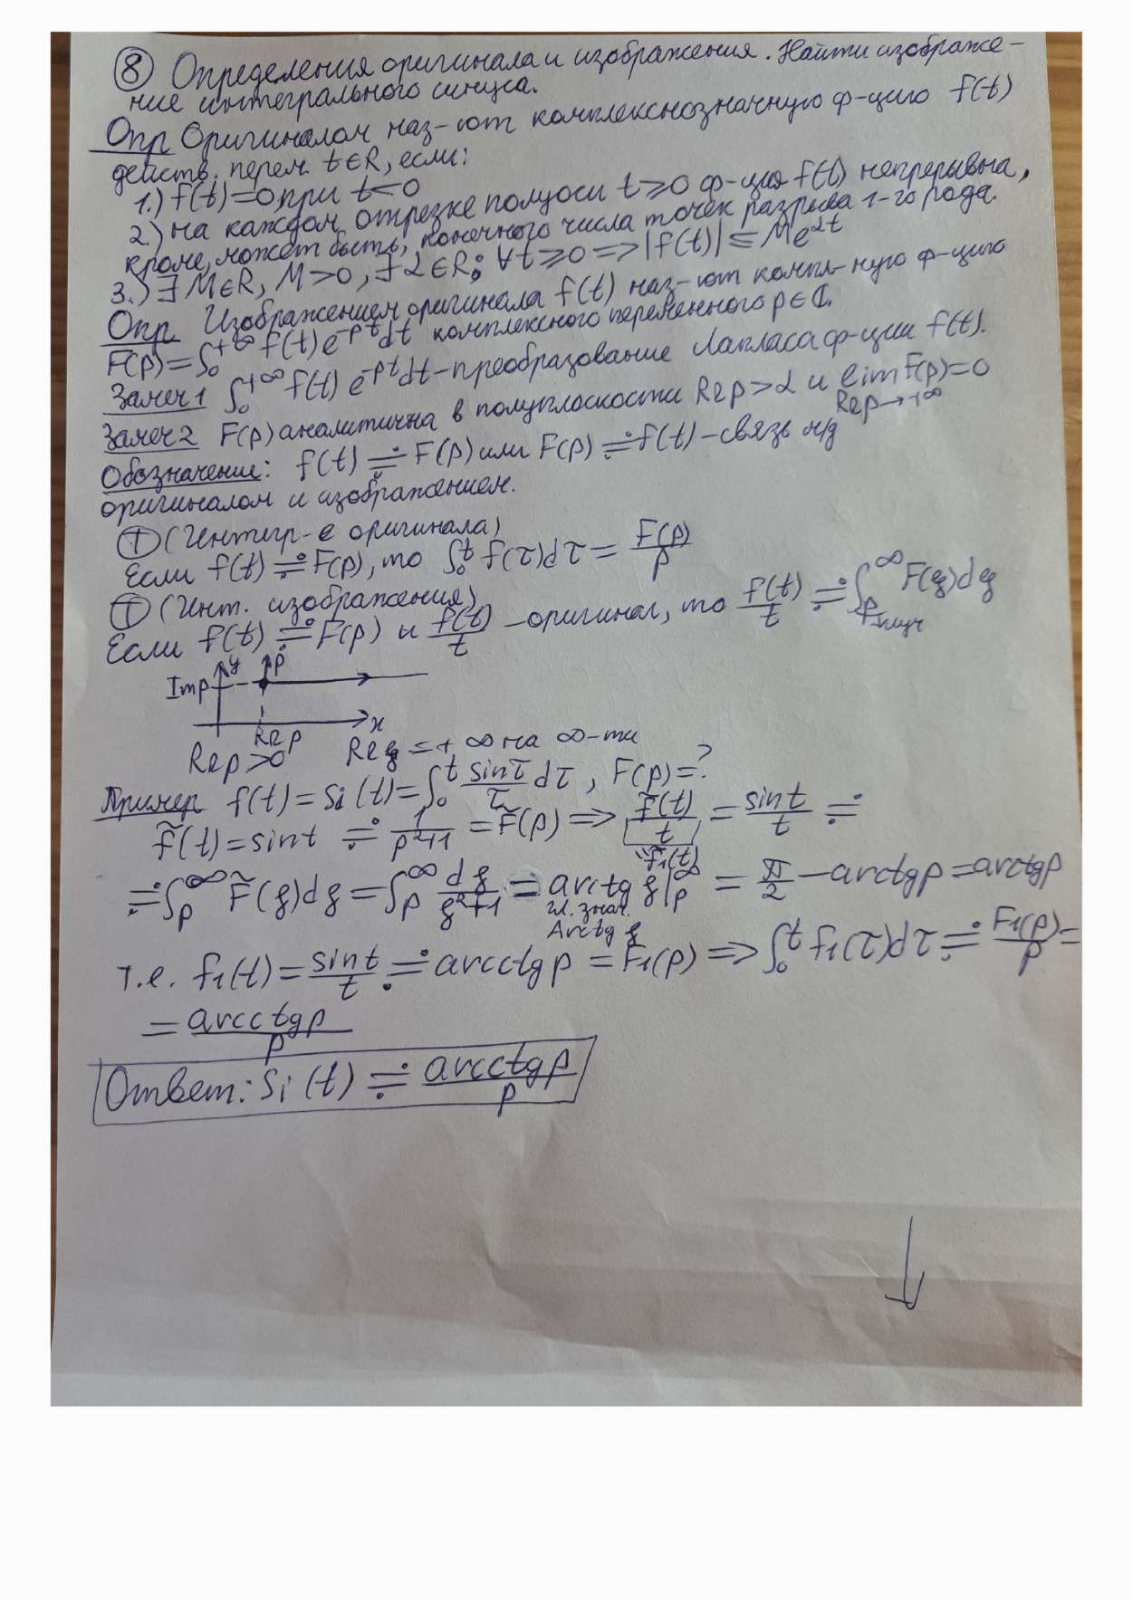 ⑧ Определения оригинала и изображения. Найти изображе-
ние интегрального синуса.
Опр Оригиналом наз-ют комплекснозначную ф-цию f(t)
действ. перем. t∈R, если:
1.) f(t)=0 при t<0
2.) на каждом отрезке полуоси t⩾0 ф-ция f(t) непрерывна,
кроме, может быть, конечного числа точек разрыва 1-го рода.
3.) ∃ M∈R, M>0, ∃ α∈R: ∀t⩾0 => |f(t)| ⩽ Me^{αt}
Опр Изображением оригинала f(t) наз-ют компл-ную ф-цию
F(p)=∫₀^{+∞} f(t)e^{-pt}dt комплексного переменного p∈ℂ.
Замеч 1 ∫₀^{+∞} f(t)e^{-pt}dt - преобразование Лапласа ф-ции f(t).
Замеч 2 F(p) аналитична в полуплоскости Re p>α и lim_{Re p→+∞} F(p)=0
Обозначение: f(t) ≓ F(p) или F(p) ≓ f(t) - связь м/д
оригиналом и изображением.
Ⓣ (Интегр-е оригинала)
Если f(t) ≓ F(p), то ∫₀^t f(τ)dτ = F(p)/p
Ⓣ (Инт. изображения)
Если f(t) ≓ F(p) и f(t)/t - оригинал, то f(t)/t ≓ ∫_p^∞ F(g)dg
луч
y p
Im p
Re p x
Re p>0 Re g = +∞ на ∞-ти
Пример f(t)=Si(t)=∫₀^t sinτ/τ dτ, F(p)=?
f̃(t)=sint ≓ 1/(p²+1) = F̃(p) => f̃(t)/t = sint/t ≓
"f₁(t)
≓ ∫_p^∞ F̃(g)dg = ∫_p^∞ dg/(g²+1) = arctg g|_p^∞ = π/2 - arctgp = arcctgp
гл. знач.
Arctg g
т.е. f₁(t) = sint/t ≓ arcctgp = F₁(p) => ∫₀^t f₁(τ)dτ ≓ F₁(p)/p =
= arcctgp/p
Ответ: Si(t) ≓ arcctgp/p